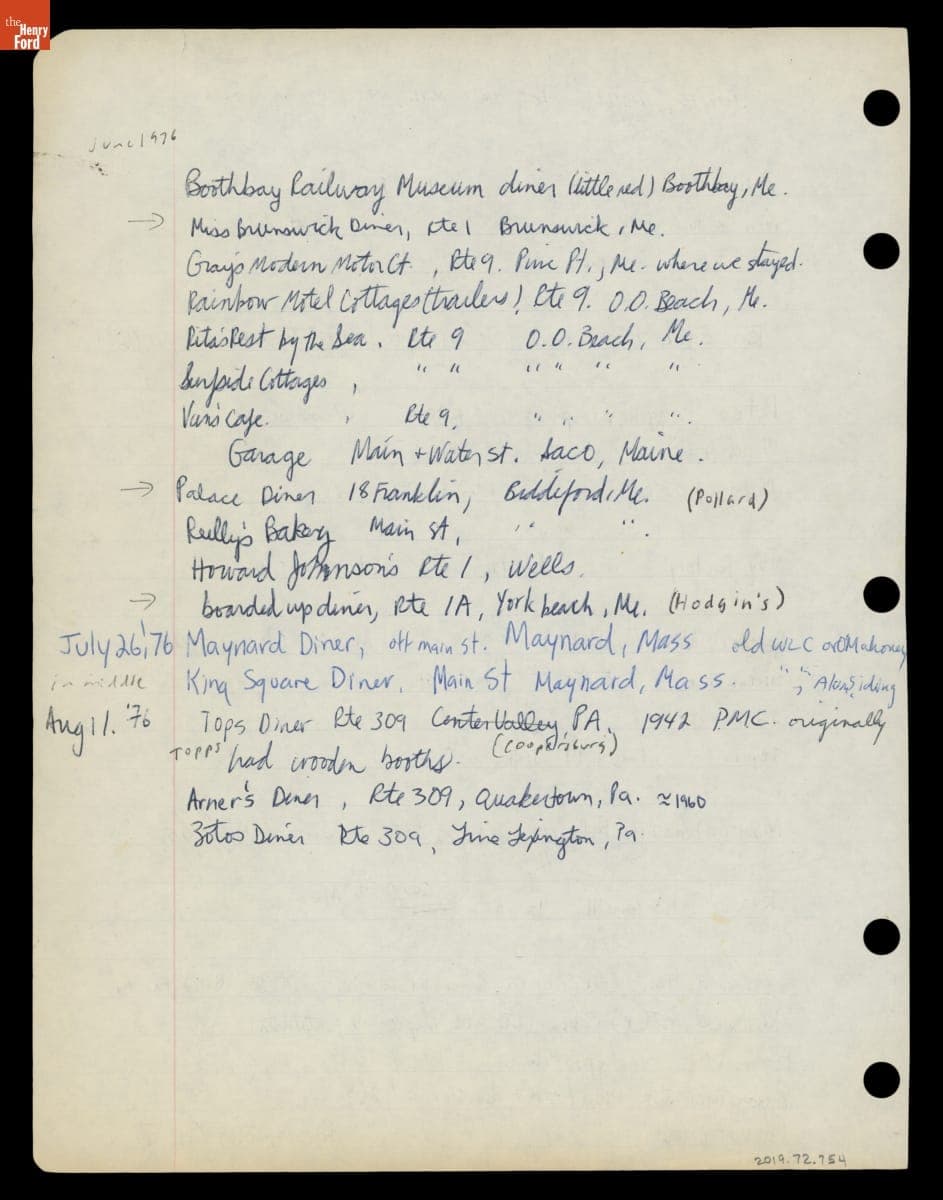 the Henry Ford
June 1976
Boothbay Railway Museum diner (little red) Boothbay, Me.
→ Miss Brunswick Diner, Rte 1 Brunswick, Me.
Gray's Modern Motor Ct., Rte 9. Pine Pt., Me. where we stayed.
Rainbow Motel Cottages (trailers) Rte 9. O.O. Beach, Me.
Rita's Rest by the Sea. Rte 9 O.O. Beach, Me.
Surfside Cottages, " " " " " "
Van's Cafe. Rte 9, " " " "
Garage Main + Water St. Saco, Maine.
→ Palace Diner 18 Franklin, Biddeford, Me. (Pollard)
Reilly's Bakery Main St, " "
Howard Johnson's Rte 1, Wells.
→ boarded up diner, Rte 1A, York beach, Me. (Hodgin's)
July 26, '76 Maynard Diner, off main st. Maynard, Mass old WLC or O'Mahoney
in middle King Square Diner, Main St Maynard, Mass. " "; Alum. siding
Aug 11. '76 Tops Diner Rte 309 Center Valley, PA. 1942 P.M.C. originally
(Coopersburg)
TOPPS had wooden booths.
Arner's Diner, Rte 309, Quakertown, Pa. ≈1960
Zotos Diner Rte 309, Line Lexington, Pa.
2019.72.754